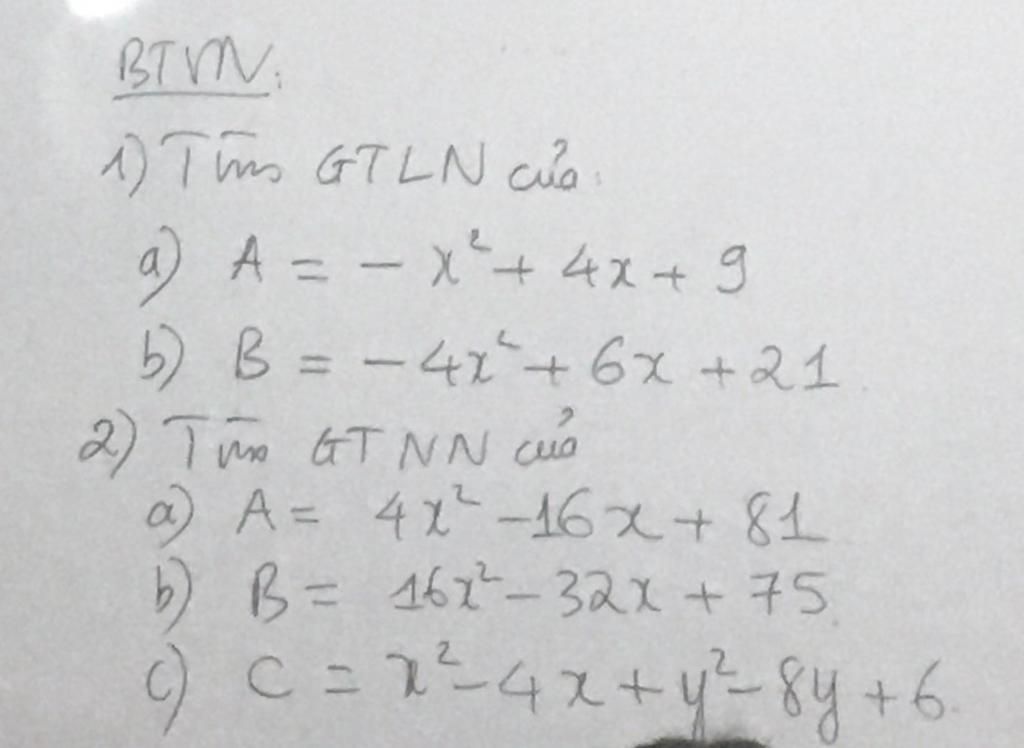 BTVN:
1) Tìm GTLN của:
a) A = - x² + 4x + 9
b) B = - 4x² + 6x + 21
2) Tìm GTNN của
a) A = 4x² - 16x + 81
b) B = 16x² - 32x + 75
c) C = x² - 4x + y² - 8y + 6